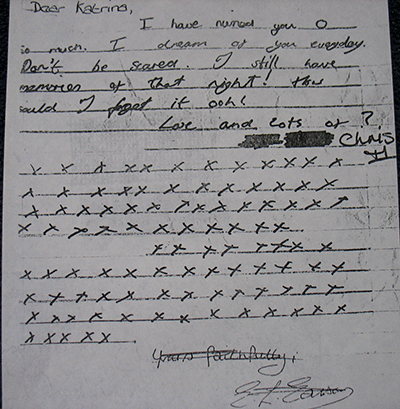 Dear Katrina,
I have missed you O
so much. I dream of you everyday.
Don't be scared. I still have
memories of that night! How
could I forget it ooh!
Love and lots of ?
Chris
x x x x x x x x x x x x
x x x x x x x x x x x
x x x x x x x x x x x x x
x x x x x x x x x x x
x x x x x x x x
x x x x x x x x x x x x
x x x x x x x x x x x x
x x x x x x x x x x x
x x x x x .
Yours faithfully,